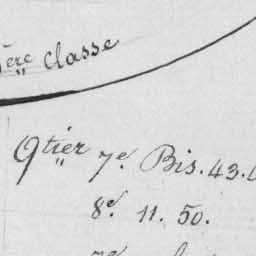 ère Classe
9tier 7e. Bis. 43.
8e. 11. 50.